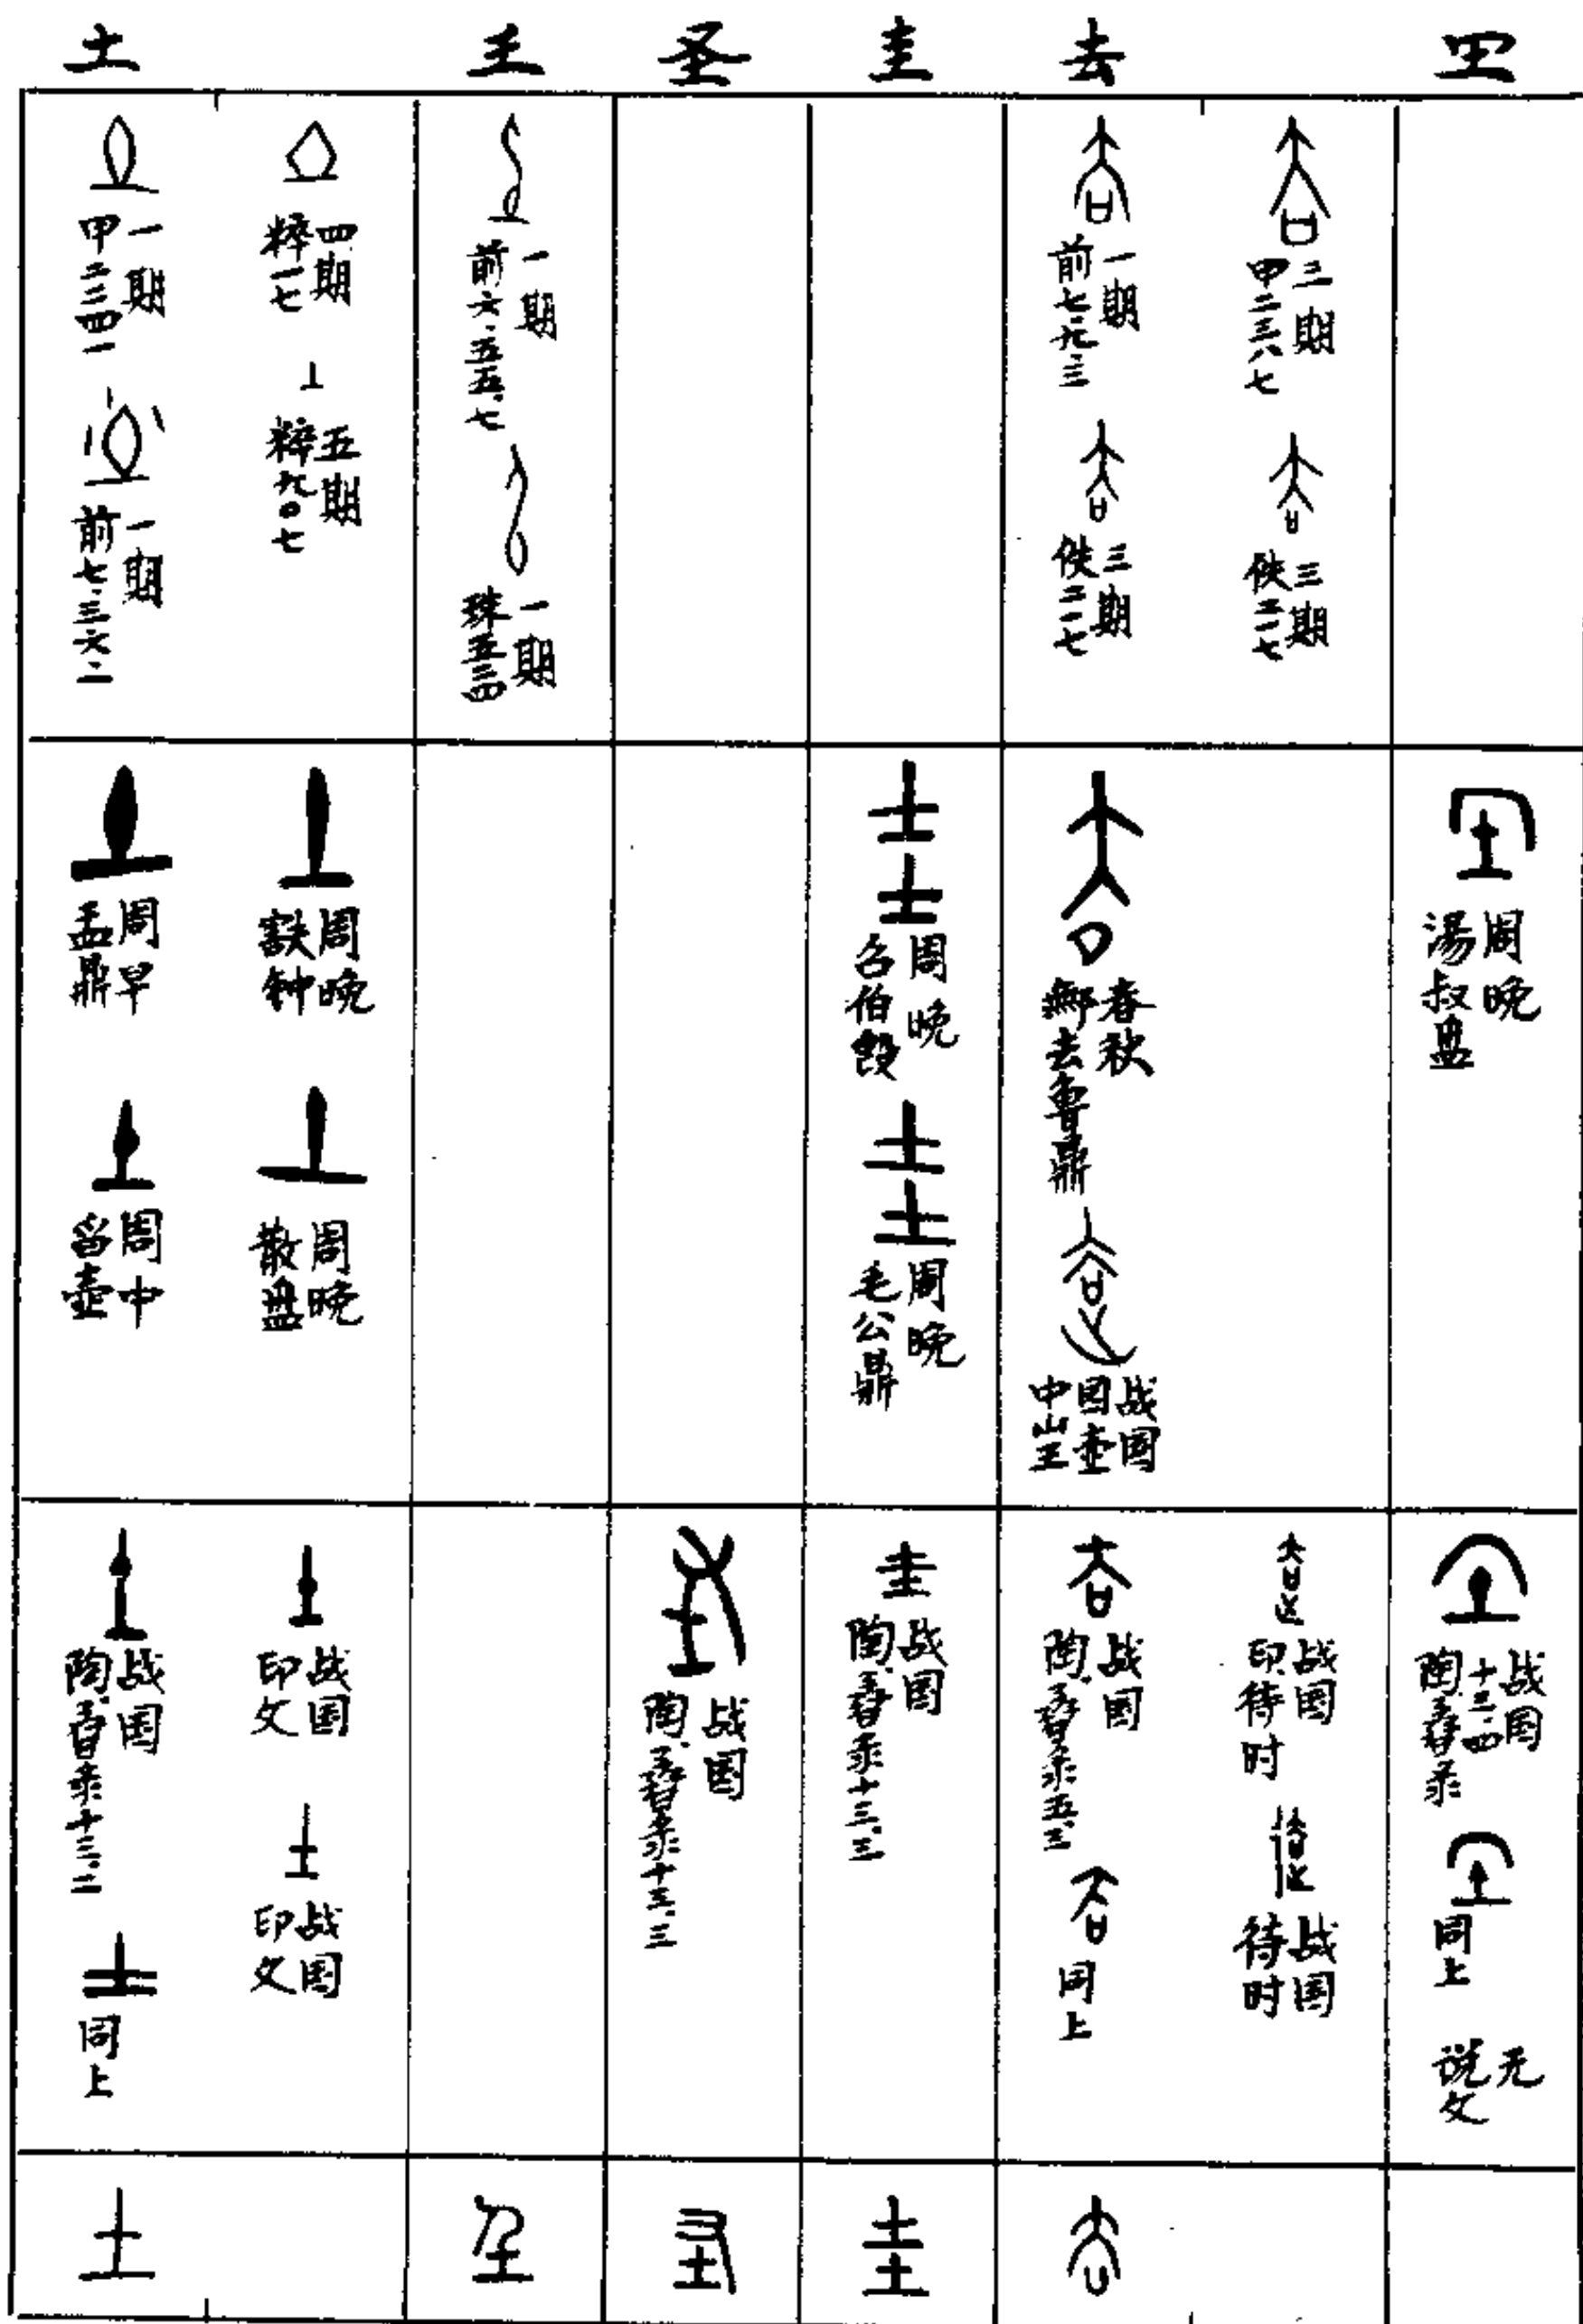 土 圣 圭 去
一期
甲二三四一
一期
前七·三六·二
四期
粹一七
五期
粹九〇七
一期
前六·五五·七
一期
珠五三四
一期
前七·九·三
三期
佚三一七
二期
甲二三六七
三期
佚三一七
周早
盂鼎
周中
曶壶
周晚
㝬钟
周晚
散盘
周晚
召伯𣪘
周晚
毛公鼎
春秋
去鲁鼎
战国
中山王圆壶
周晚
湯叔盘
战国
陶舂录十三·二
同上
战国
印文
战国
印文
战国
陶舂录十三·三
战国
陶舂录十三·三
战国
陶舂录五·三
同上
战国
印待时
战国
待时
战国
陶舂录
十三·四
同上
说文无
土 圣 圭 去